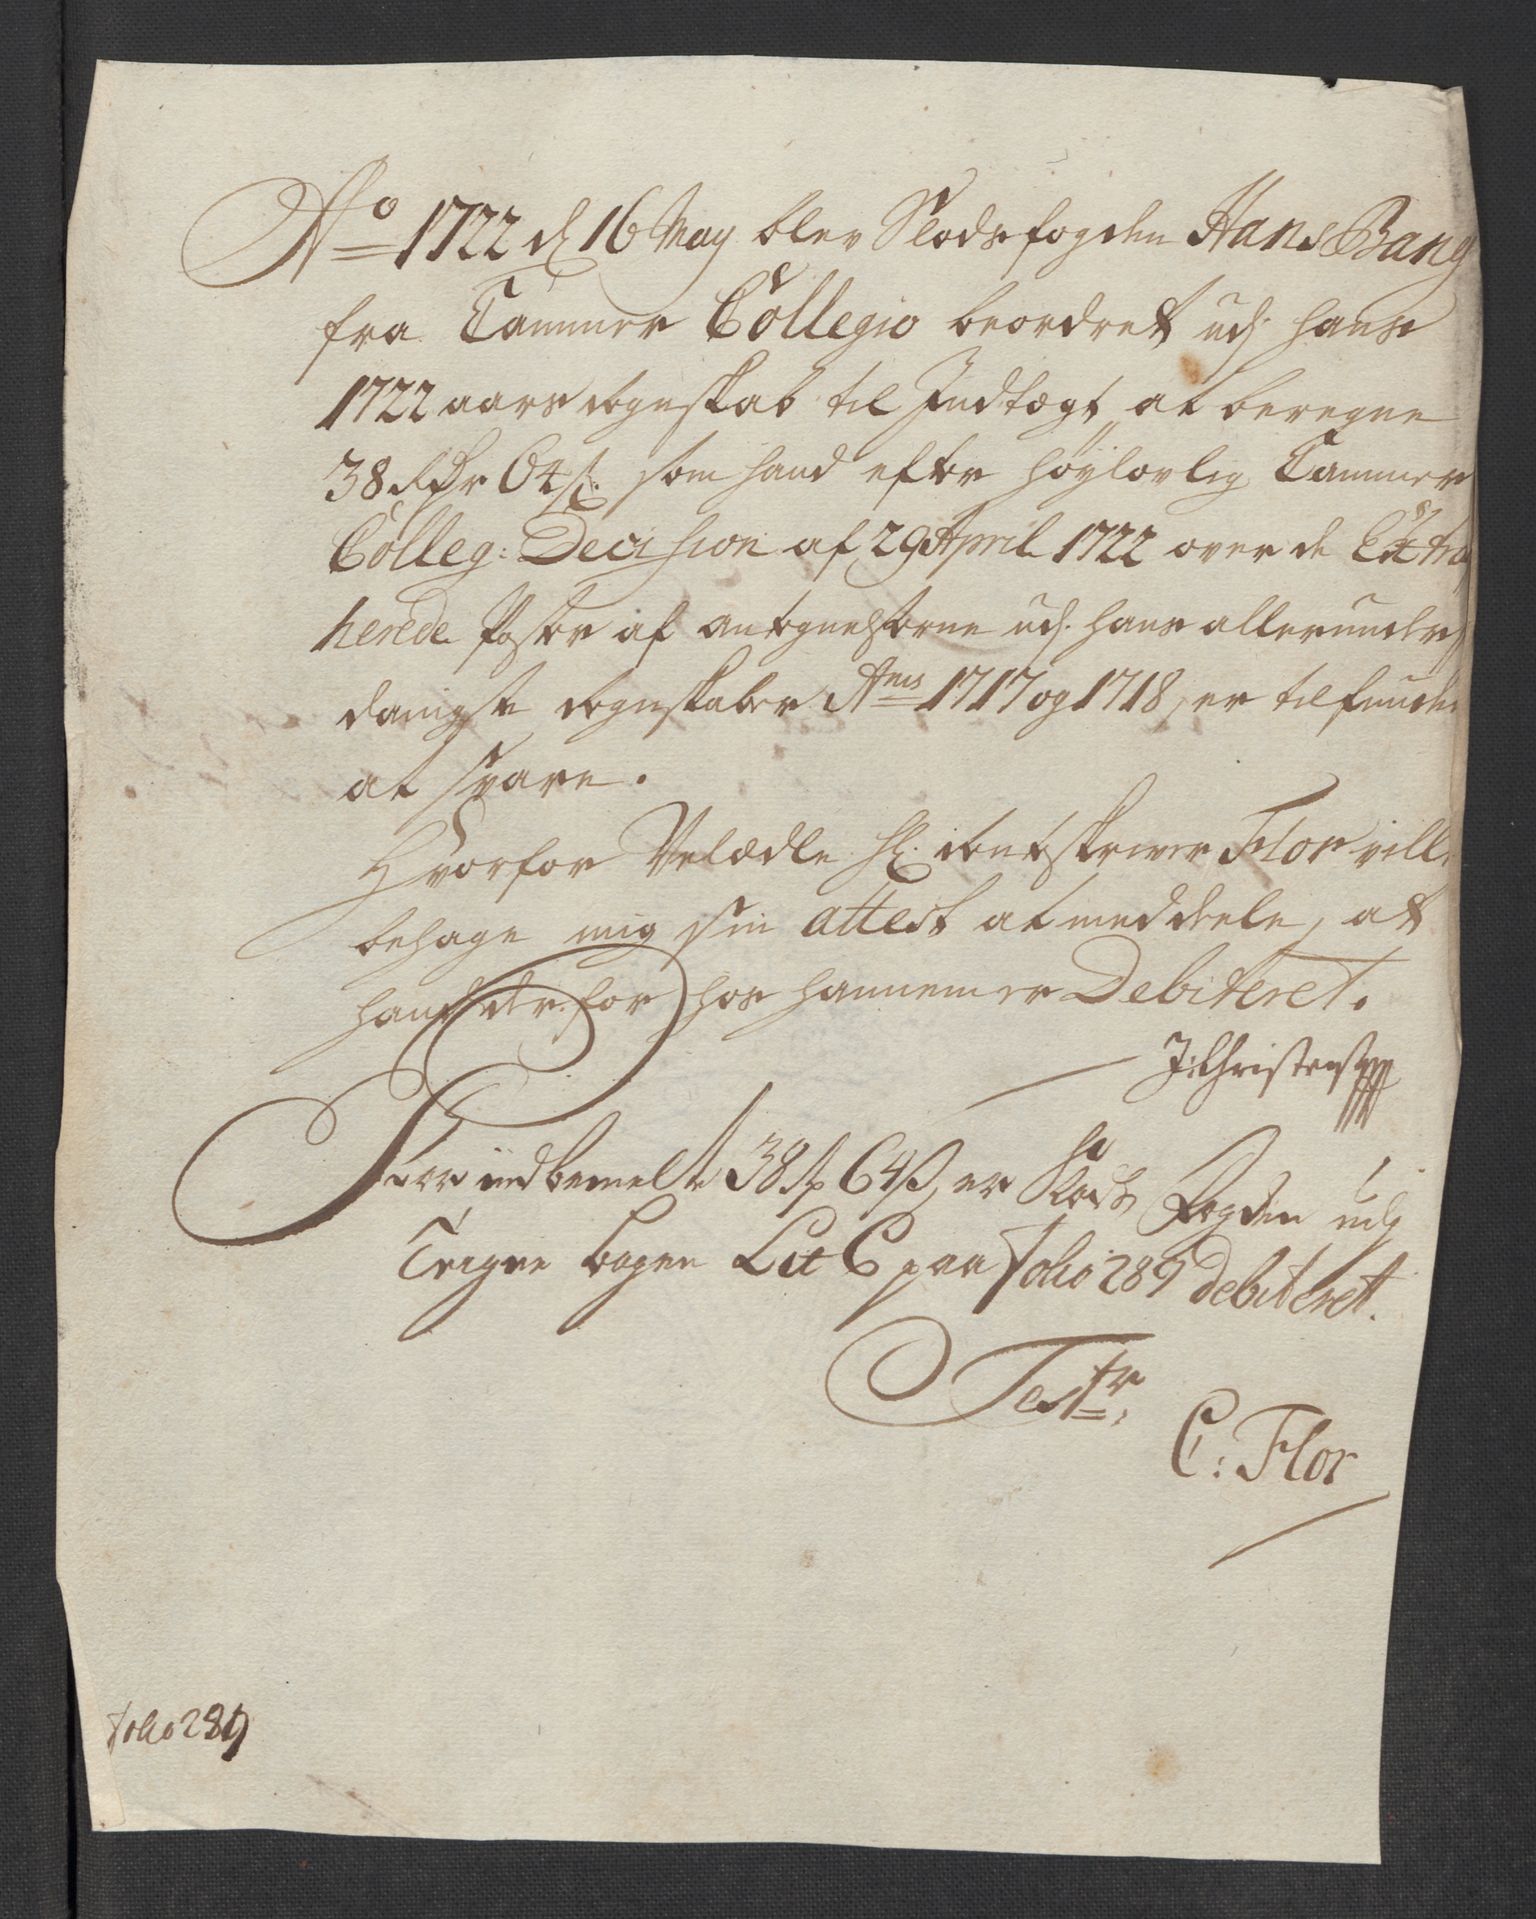 Ao 1722 d 16 May blev Slodsfogden Hans Bang
fra Cammer Collegio beordret udj hans
1722 aars regnskab til Indtægt at beregne
38 Rdr 64 s. som hand efter høylovlig Cammer
Colleg: Decision af 29 April 1722 over de Extra
herede Poster af antegnelserne udj hans allerunder
danigste regnskaber Anis 1717 og 1718, er tilfunden
at svare.
Hvorfor Velædle Hr. rentskriver Flor ville
behage mig sin attest at meddeele, at
hand derfor hos hannem er Debiteret.
J: Christensen
Forr indbemelte 38 rd 64 s, er Slods Fogden udj
Teigne bogen Lit C paa Folio 289 debiteret.
Test:r
C: Flor
folio 289